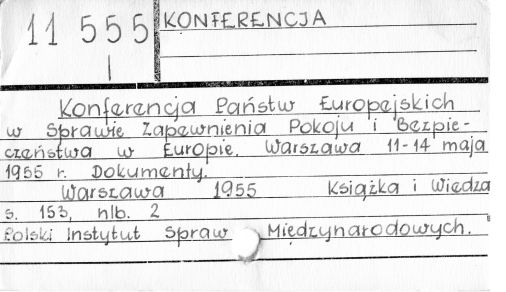 11 555
I
KONFERENCJA
Konferencja Państw Europejskich
w Sprawie Zapewnienia Pokoju i Bezpie-
czeństwa w Europie. Warszawa 11-14 maja
1955 r. Dokumenty.
Warszawa 1955 Książka i Wiedza
s. 153, nlb. 2
Polski Instytut Spraw Międzynarodowych.